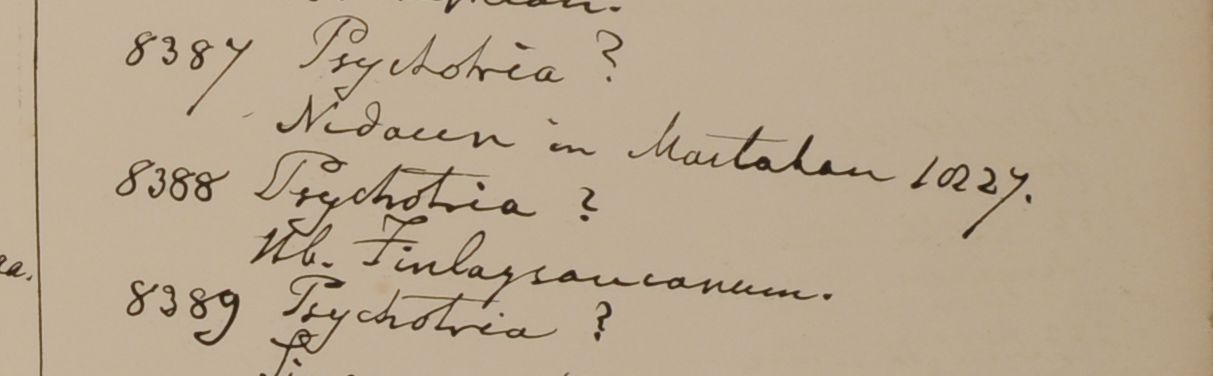 8387 Psychotria ?
Nidaun in Martaban 1827.
8388 Psychotria ?
Hb. Finlaysonianum.
8389 Psychotria ?